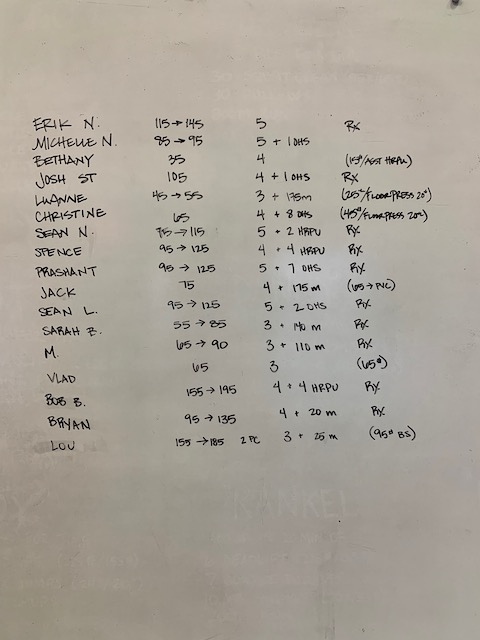 ERIK N. 115→145 5 Rx
MICHELLE N. 85→95 5 + 1 OHS
BETHANY 35 4 (15#/ASST HRPU)
JOSH ST 105 4 + 1 OHS Rx
LUANNE 45→55 3 + 175m (25#/FLOOR PRESS 20#)
CHRISTINE 65 4 + 8 OHS (45#/FLOOR PRESS 20#)
SEAN N. 75→115 5 + 2 HRPU Rx
SPENCE 95→125 4 + 4 HRPU Rx
PRASHANT 95→125 5 + 7 OHS Rx
JACK 75 4 + 175m (65→PVC)
SEAN L. 95→125 5 + 2 OHS Rx
SARAH B. 55→85 3 + 140 m Rx
M. 65→90 3 + 110 m Rx
VLAD 65 3 (65#)
BOB B. 155→195 4 + 4 HRPU Rx
BRYAN 95→135 4 + 20 m Rx
LOU 155→185 2 PC 3 + 25 m (95# BS)